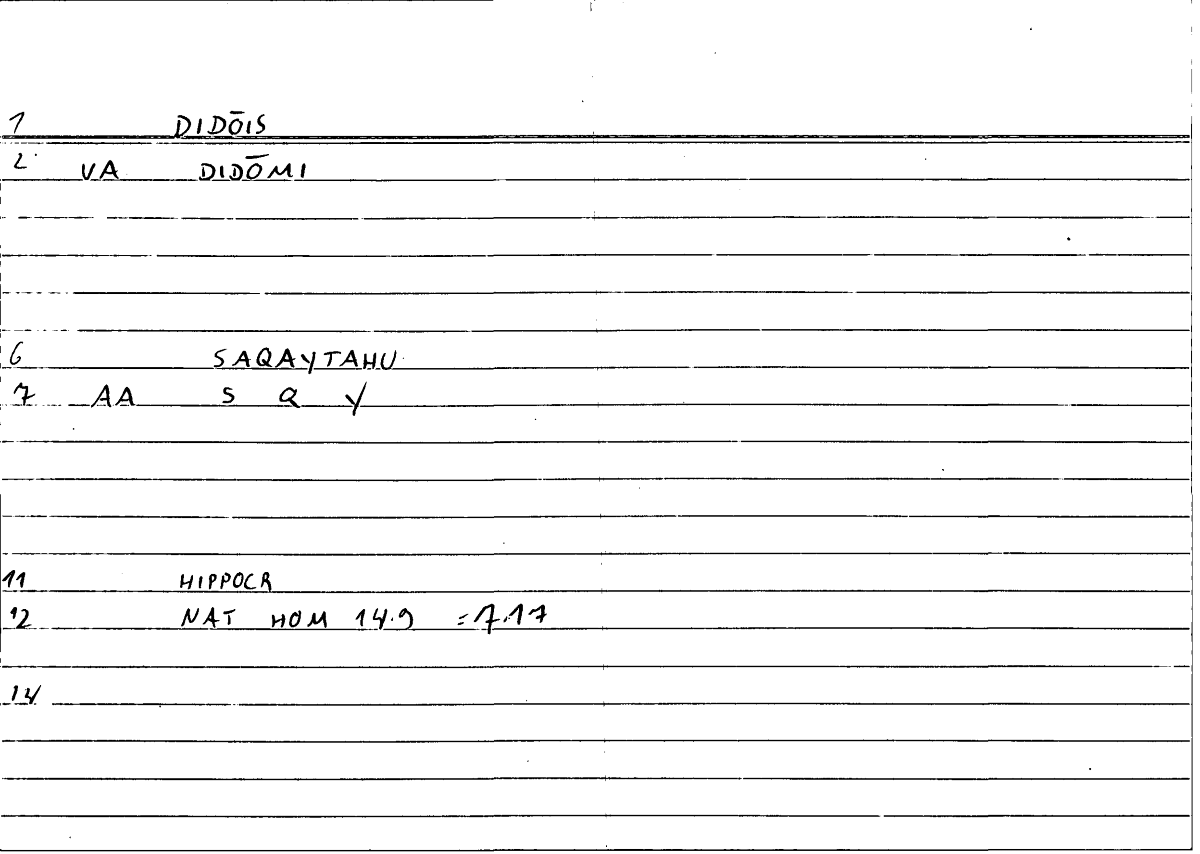 1 DIDŌIS
2 VA DIDŌMI
6 SAQAYTAHU
7 AA S Q Y
11 HIPPOCR
12 NAT HOM 14.9 = 7.17
14